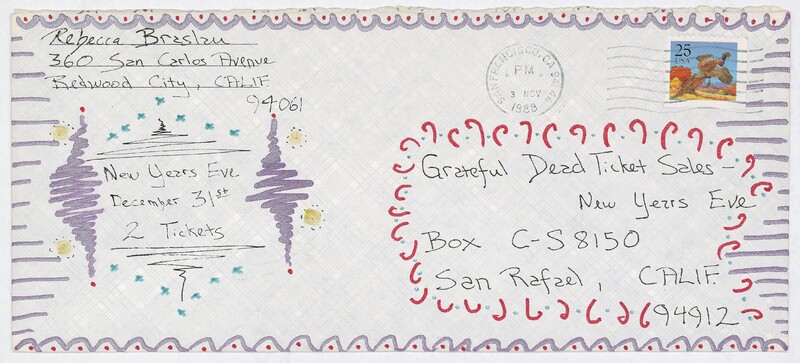 Rebecca Braslau
360 San Carlos Avenue
Redwood City, CALIF.
94061
SAN FRANCISCO, CA
PM
3 NOV
1988
25
USA
New Years Eve
December 31st
2 Tickets
Grateful Dead Ticket Sales –
New Years Eve
Box C-S 8150
San Rafael, CALIF.
94912